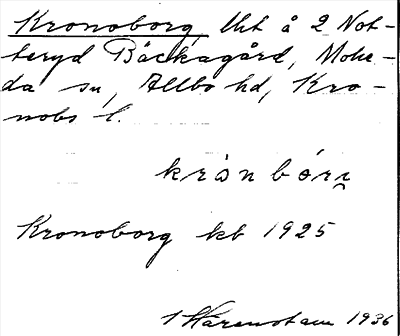 Kronoborg, lht å 2 Not-
teryd Bäckagård, Mohe-
da sn, Allbo hd, Kro-
nobs l.
krònbórj
Kronoborg kb 1925
1936